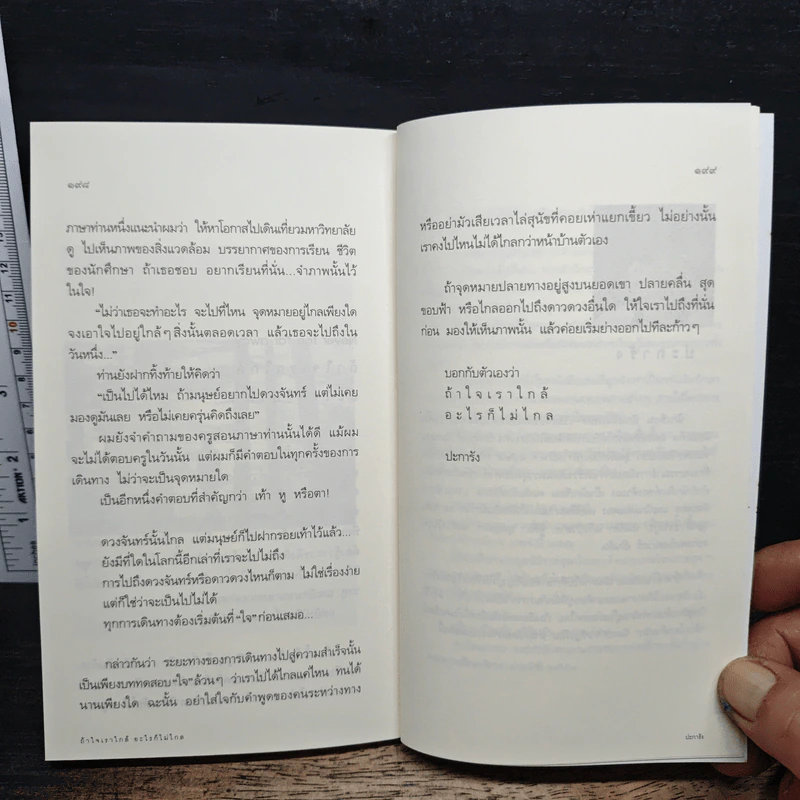 ๑๙๘
ภาษาท่านหนึ่งแนะนำผมว่า ให้หาโอกาสไปเดินเที่ยวมหาวิทยาลัย
ดู ไปเห็นภาพของสิ่งแวดล้อม บรรยากาศของการเรียน ชีวิต
ของนักศึกษา ถ้าเธอชอบ อยากเรียนที่นั่น...จำภาพนั้นไว้
ในใจ!
“ไม่ว่าเธอจะทำอะไร จะไปที่ไหน จุดหมายอยู่ไกลเพียงใด
จงเอาใจไปอยู่ใกล้ๆ สิ่งนั้นตลอดเวลา แล้วเธอจะไปถึงใน
วันหนึ่ง...”
ท่านยังฝากทิ้งท้ายให้คิดว่า
“เป็นไปได้ไหม ถ้ามนุษย์อยากไปดวงจันทร์ แต่ไม่เคย
มองดูมันเลย หรือไม่เคยครุ่นคิดถึงเลย”
ผมยังจำคำถามของครูสอนภาษาท่านนั้นได้ดี แม้ผม
จะไม่ได้ตอบครูในวันนั้น แต่ผมก็มีคำตอบในทุกครั้งของการ
เดินทาง ไม่ว่าจะเป็นจุดหมายใด
เป็นอีกหนึ่งคำตอบที่สำคัญกว่า เท้า หู หรือตา!
ดวงจันทร์นั้นไกล แต่มนุษย์ก็ไปฝากรอยเท้าไว้แล้ว...
ยังมีที่ใดในโลกนี้อีกเล่าที่เราจะไปไม่ถึง
การไปถึงดวงจันทร์หรือดาวดวงไหนก็ตาม ไม่ใช่เรื่องง่าย
แต่ก็ใช่ว่าจะเป็นไปไม่ได้
ทุกการเดินทางต้องเริ่มต้นที่ “ใจ” ก่อนเสมอ...
กล่าวกันว่า ระยะทางของการเดินทางไปสู่ความสำเร็จนั้น
เป็นเพียงบททดสอบ “ใจ” ล้วนๆ ว่าเราไปได้ไกลแค่ไหน ทนได้
นานเพียงใด ฉะนั้น อย่าใส่ใจกับคำพูดของคนระหว่างทาง
ถ้าใจเราใกล้ อะไรก็ไม่ไกล
๑๙๙
หรืออย่ามัวเสียเวลาไล่สุนัขที่คอยเห่าแยกเขี้ยว ไม่อย่างนั้น
เราคงไปไหนไม่ได้ไกลกว่าหน้าบ้านตัวเอง
ถ้าจุดหมายปลายทางอยู่สูงบนยอดเขา ปลายคลื่น สุด
ขอบฟ้า หรือไกลออกไปถึงดาวดวงอื่นใด ให้ใจเราไปถึงที่นั่น
ก่อน มองให้เห็นภาพนั้น แล้วค่อยเริ่มย่างออกไปทีละก้าวๆ
บอกกับตัวเองว่า
ถ้าใจเราใกล้
อะไรก็ไม่ไกล
ปะการัง
ปะการัง